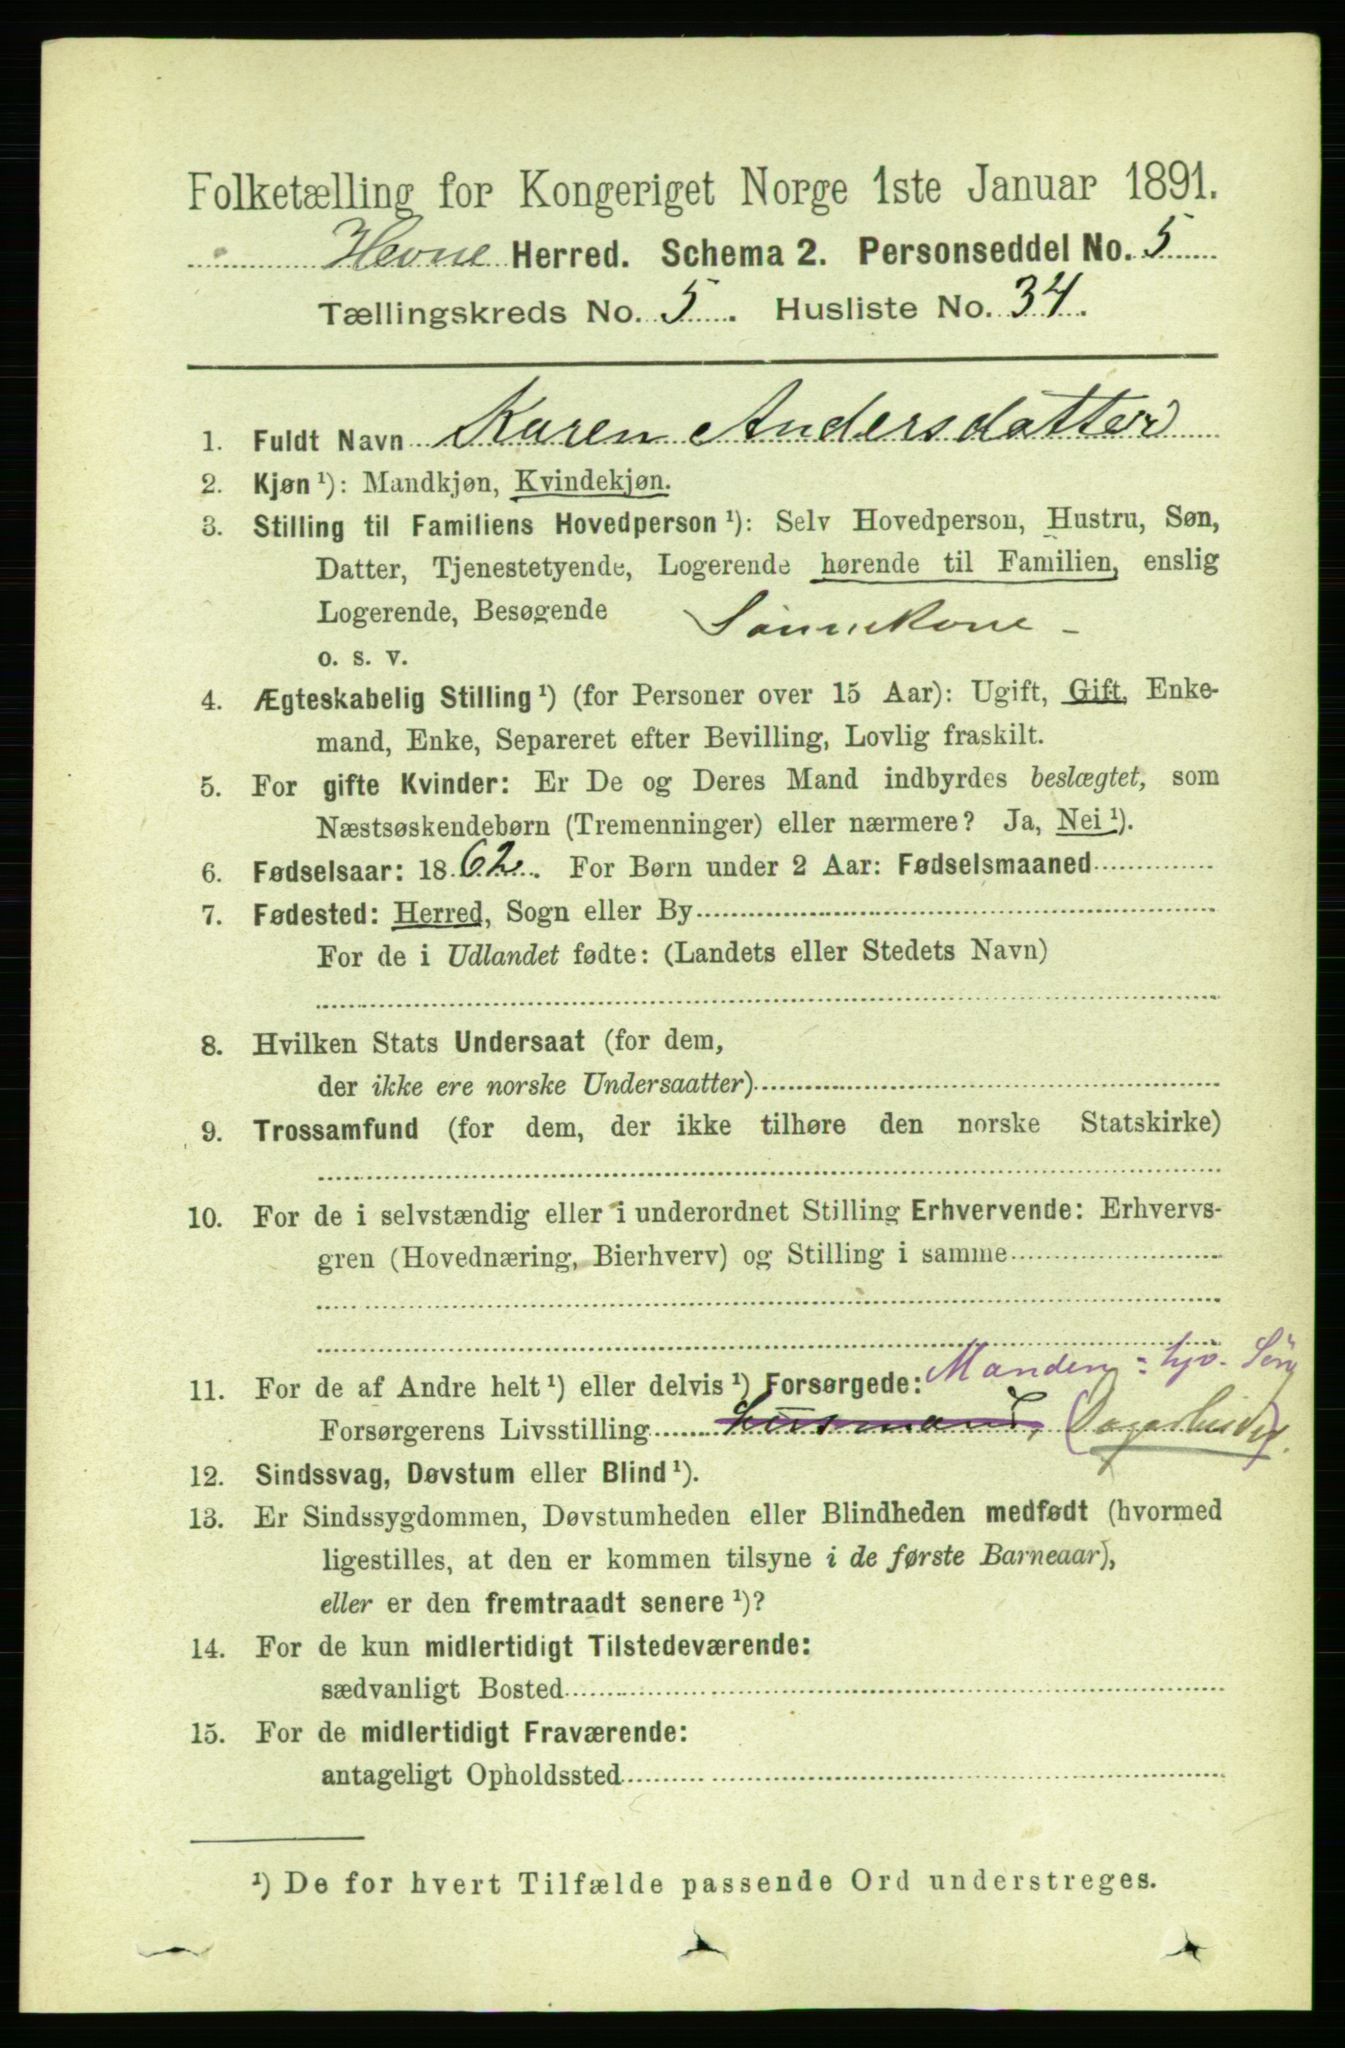 Folketælling for Kongeriget Norge 1ste Januar 1891.
Hevne Herred. Schema 2. Personseddel No. 5
Tællingskreds No. 5. Husliste No. 34.
1. Fuldt Navn Karen Andersdatter
2. Kjøn ¹): Mandkjøn, Kvindekjøn.
3. Stilling til Familiens Hovedperson ¹): Selv Hovedperson, Hustru, Søn,
Datter, Tjenestetyende, Logerende hørende til Familien, enslig
Logerende, Besøgende Sønnekone -
o. s. v.
4. Ægteskabelig Stilling ¹) (for Personer over 15 Aar): Ugift, Gift, Enke-
mand, Enke, Separeret efter Bevilling, Lovlig fraskilt.
5. For gifte Kvinder: Er De og Deres Mand indbyrdes beslægtet, som
Næstsøskendebørn (Tremenninger) eller nærmere? Ja, Nei ¹).
6. Fødselsaar: 1862. For Børn under 2 Aar: Fødselsmaaned
7. Fødested: Herred, Sogn eller By
For de i Udlandet fødte: (Landets eller Stedets Navn)
8. Hvilken Stats Undersaat (for dem,
der ikke ere norske Undersaatter)
9. Trossamfund (for dem, der ikke tilhøre den norske Statskirke)
10. For de i selvstændig eller i underordnet Stilling Erhvervende: Erhvervs-
gren (Hovednæring, Bierhverv) og Stilling i samme
11. For de af Andre helt ¹) eller delvis ¹) Forsørgede: Manden = hjv. Søn
Forsørgerens Livsstilling Husmand, (Dagarbeider).
12. Sindssvag, Døvstum eller Blind ¹).
13. Er Sindssygdommen, Døvstumheden eller Blindheden medfødt (hvormed
ligestilles, at den er kommen tilsyne i de første Barneaar),
eller er den fremtraadt senere ¹)?
14. For de kun midlertidigt Tilstedeværende:
sædvanligt Bosted
15. For de midlertidigt Fraværende:
antageligt Opholdssted
¹) De for hvert Tilfælde passende Ord understreges.